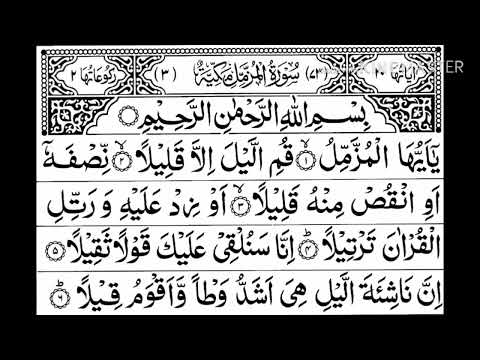 اٰیَاتُهَا ٢٠ (٧٣) سُوْرَةُ الْمُزَّمِّلِ مَكِّيَّةٌ (٣) رُكُوْعَاتُهَا ٢
بِسْمِ اللهِ الرَّحْمٰنِ الرَّحِيْمِ
يٰۤاَيُّهَا الْمُزَّمِّلُ ۙ﴿١﴾ قُمِ الَّيْلَ اِلَّا قَلِيْلًا ۙ﴿٢﴾ نِّصْفَهٗۤ
اَوِ انْقُصْ مِنْهُ قَلِيْلًا ۙ﴿٣﴾ اَوْ زِدْ عَلَيْهِ وَ رَتِّلِ
الْقُرْاٰنَ تَرْتِيْلًا ؕ﴿٤﴾ اِنَّا سَنُلْقِيْ عَلَيْكَ قَوْلًا ثَقِيْلًا ﴿٥﴾
اِنَّ نَاشِئَةَ الَّيْلِ هِيَ اَشَدُّ وَطْاً وَّاَقْوَمُ قِيْلًا ؕ﴿٦﴾